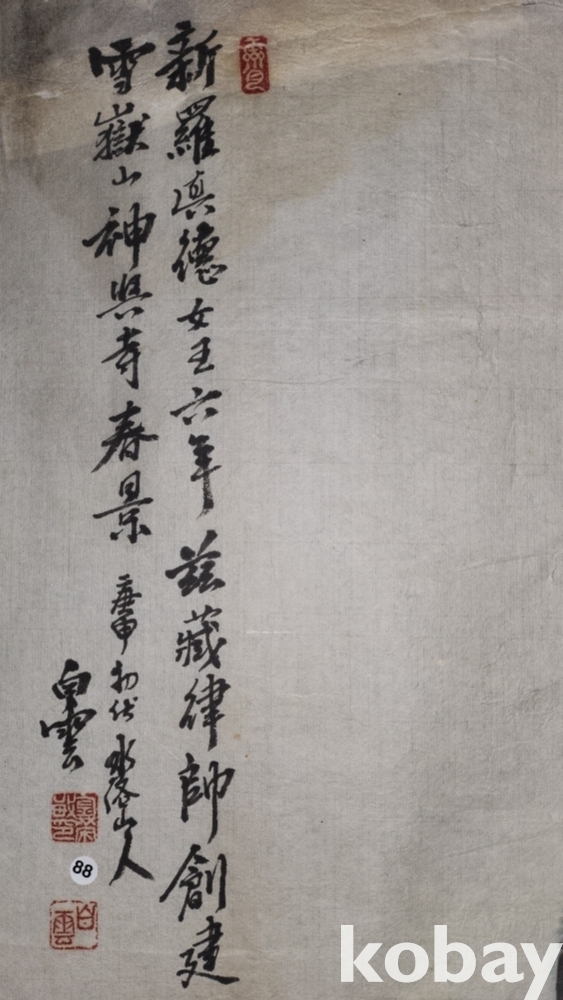 新羅眞德女王六年 慈藏律師創建
雪嶽山神興寺春景 庚申初伏 山人
白雲
白雲
88
kobay